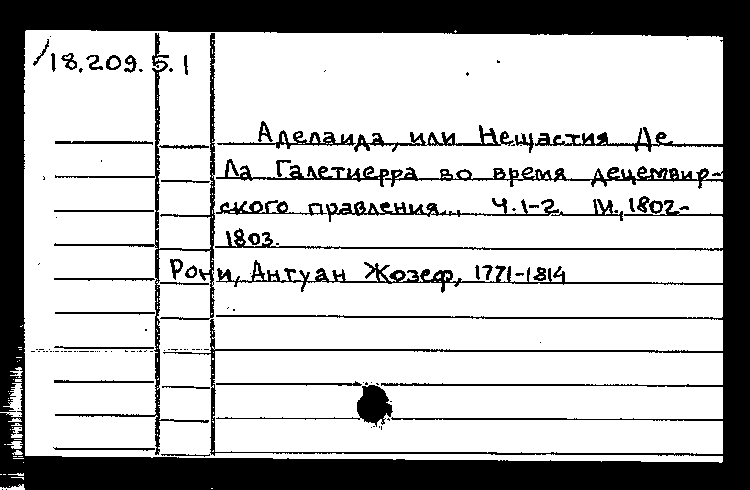 18.209.5.1
Аделаида, или Нещастия Де
Ла Галетиерра во время децемвир-
ского правления... Ч.1-2. М., 1802-
1803.
Рони, Антуан Жозеф, 1771-1814